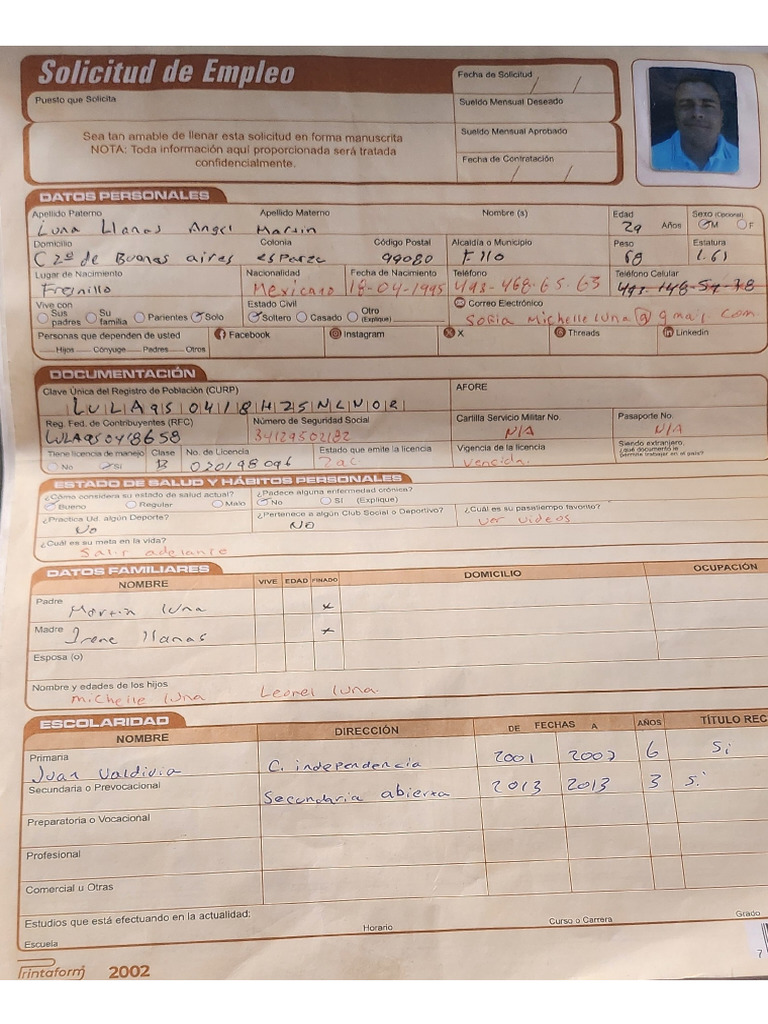 Solicitud de Empleo
Puesto que Solicita
Fecha de Solicitud / /
Sueldo Mensual Deseado
Sea tan amable de llenar esta solicitud en forma manuscrita
NOTA: Toda información aquí proporcionada será tratada
confidencialmente.
Sueldo Mensual Aprobado
Fecha de Contratación / /
DATOS PERSONALES
Apellido Paterno Apellido Materno Nombre (s) Edad Sexo (Opcional)
Luna Llanas Angel Martin 29 Años M F
Domicilio Colonia Código Postal Alcaldía o Municipio Peso Estatura
C 2º de Buenas aires esparza 99080 Fllo 68 1.61
Lugar de Nacimiento Nacionalidad Fecha de Nacimiento Teléfono Teléfono Celular
Fresnillo Mexicano 18-04-1995 493-468-65-63
Vive con Estado Civil Correo Electrónico
Sus padres Su familia Parientes Solo Soltero Casado Otro (Explique)
Sofia Michelle luna@gmail com
Personas que dependen de usted Facebook Instagram X Threads Linkedin
Hijos Cónyuge Padres Otros
DOCUMENTACIÓN
Clave Única del Registro de Población (CURP) AFORE
LULA950418HZSNLN02
Reg. Fed. de Contribuyentes (RFC) Número de Seguridad Social Cartilla Servicio Militar No. Pasaporte No.
LULA950418658 34129502182 N/A N/A
Tiene licencia de manejo Clase No. de Licencia Estado que emite la licencia Vigencia de la licencia Siendo extranjero, ¿qué documento le permite trabajar en el país?
No Si B 020198096 Zac. Vencida.
ESTADO DE SALUD Y HÁBITOS PERSONALES
¿Cómo considera su estado de salud actual? ¿Padece alguna enfermedad crónica?
Bueno Regular Malo No Sí (Explique)
¿Practica Ud. algún Deporte? ¿Pertenece a algún Club Social o Deportivo? ¿Cuál es su pasatiempo favorito?
No No ver videos
¿Cuál es su meta en la vida?
Salir adelante
DATOS FAMILIARES
NOMBRE VIVE EDAD FINADO DOMICILIO OCUPACIÓN
Padre Martin luna x
Madre Irene llanas x
Esposa (o)
Nombre y edades de los hijos
Michelle luna Leonel luna.
ESCOLARIDAD
NOMBRE DIRECCIÓN DE FECHAS A AÑOS TÍTULO REC
Primaria
Juan Valdivia C. independencia 2001 2007 6 Si
Secundaria o Prevocacional
Secundaria abierta 2013 2013 3 Si
Preparatoria o Vocacional
Profesional
Comercial u Otras
Estudios que está efectuando en la actualidad:
Escuela Horario Curso o Carrera Grado
Printaform 2002
7